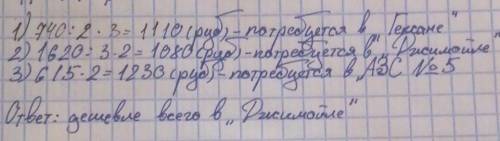 1) 740 : 2 · 3 = 1110 (руб) – потребуется в „Гексане“
2) 1620 : 3 · 2 = 1080 (руб) – потребуется в „Джимойле“
3) 615 · 2 = 1230 (руб) – потребуется в „АЗС № 5
Ответ: дешевле всего в „Джимойле“